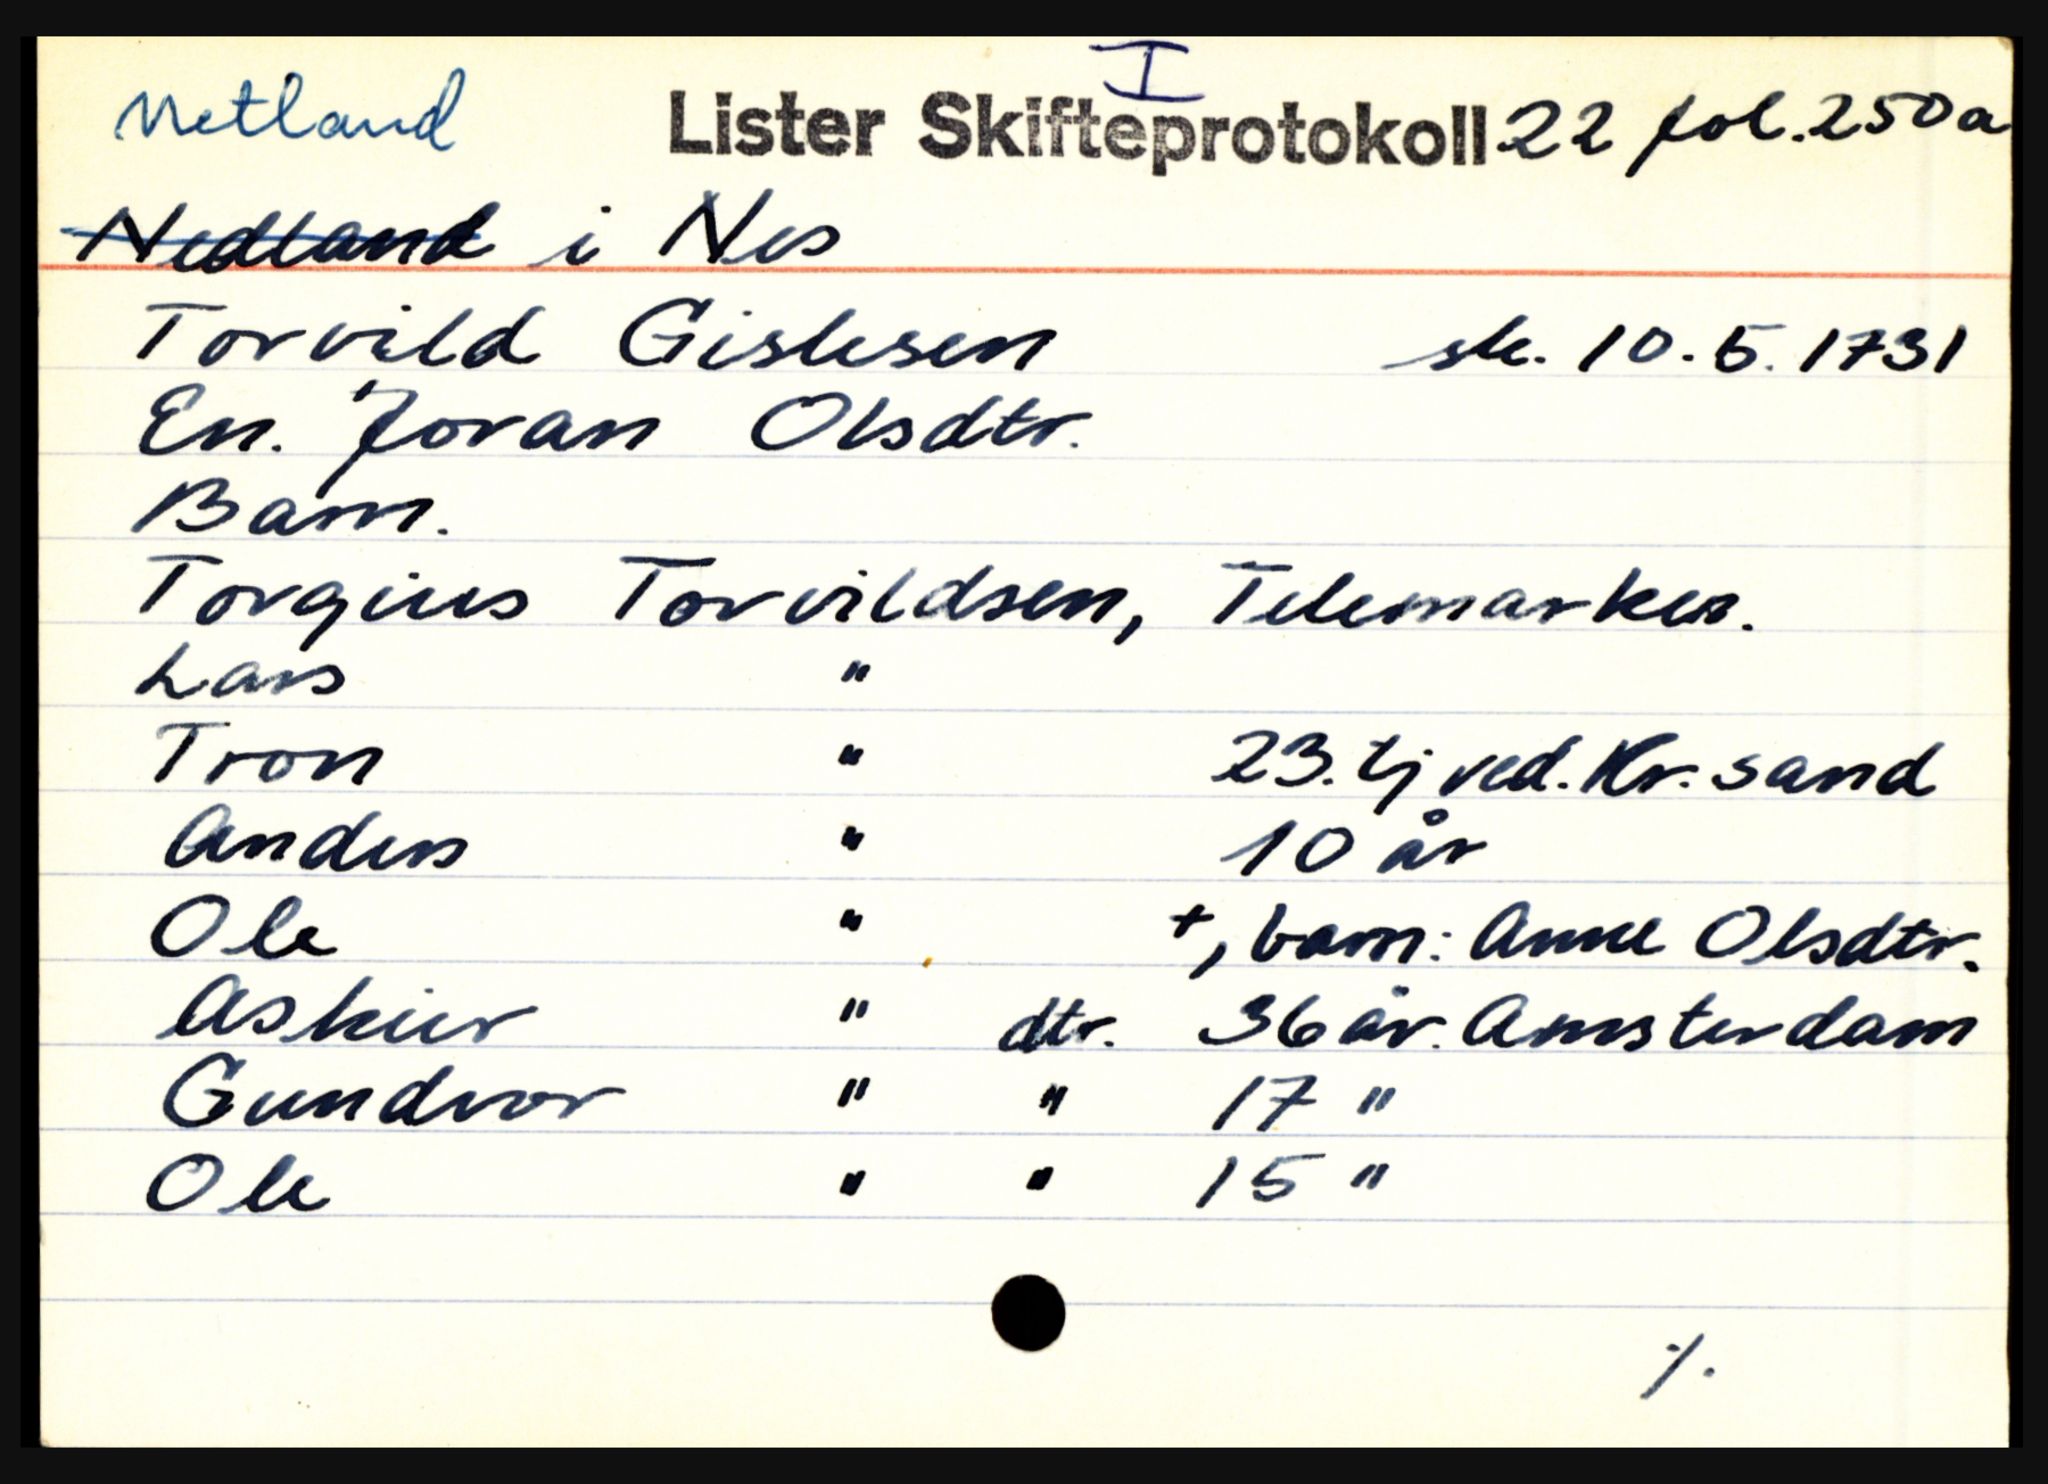 I
Netland Lister Skifteprotokoll 22 fol. 250a
Nedland i Nes
Torvild Gislesen sk. 10.5.1731
En. Joran Olsdtr.
Barn.
Torgius Torvildsen, Telemarken.
Lars "
Tron " 23. tj ved. Kr.sand
Anders " 10 år
Ole " +, barn: Anne Olsdtr.
Askier " dtr. 36 år. Amsterdam
Gundvor " " 17 "
Ole " " 15 "
./.